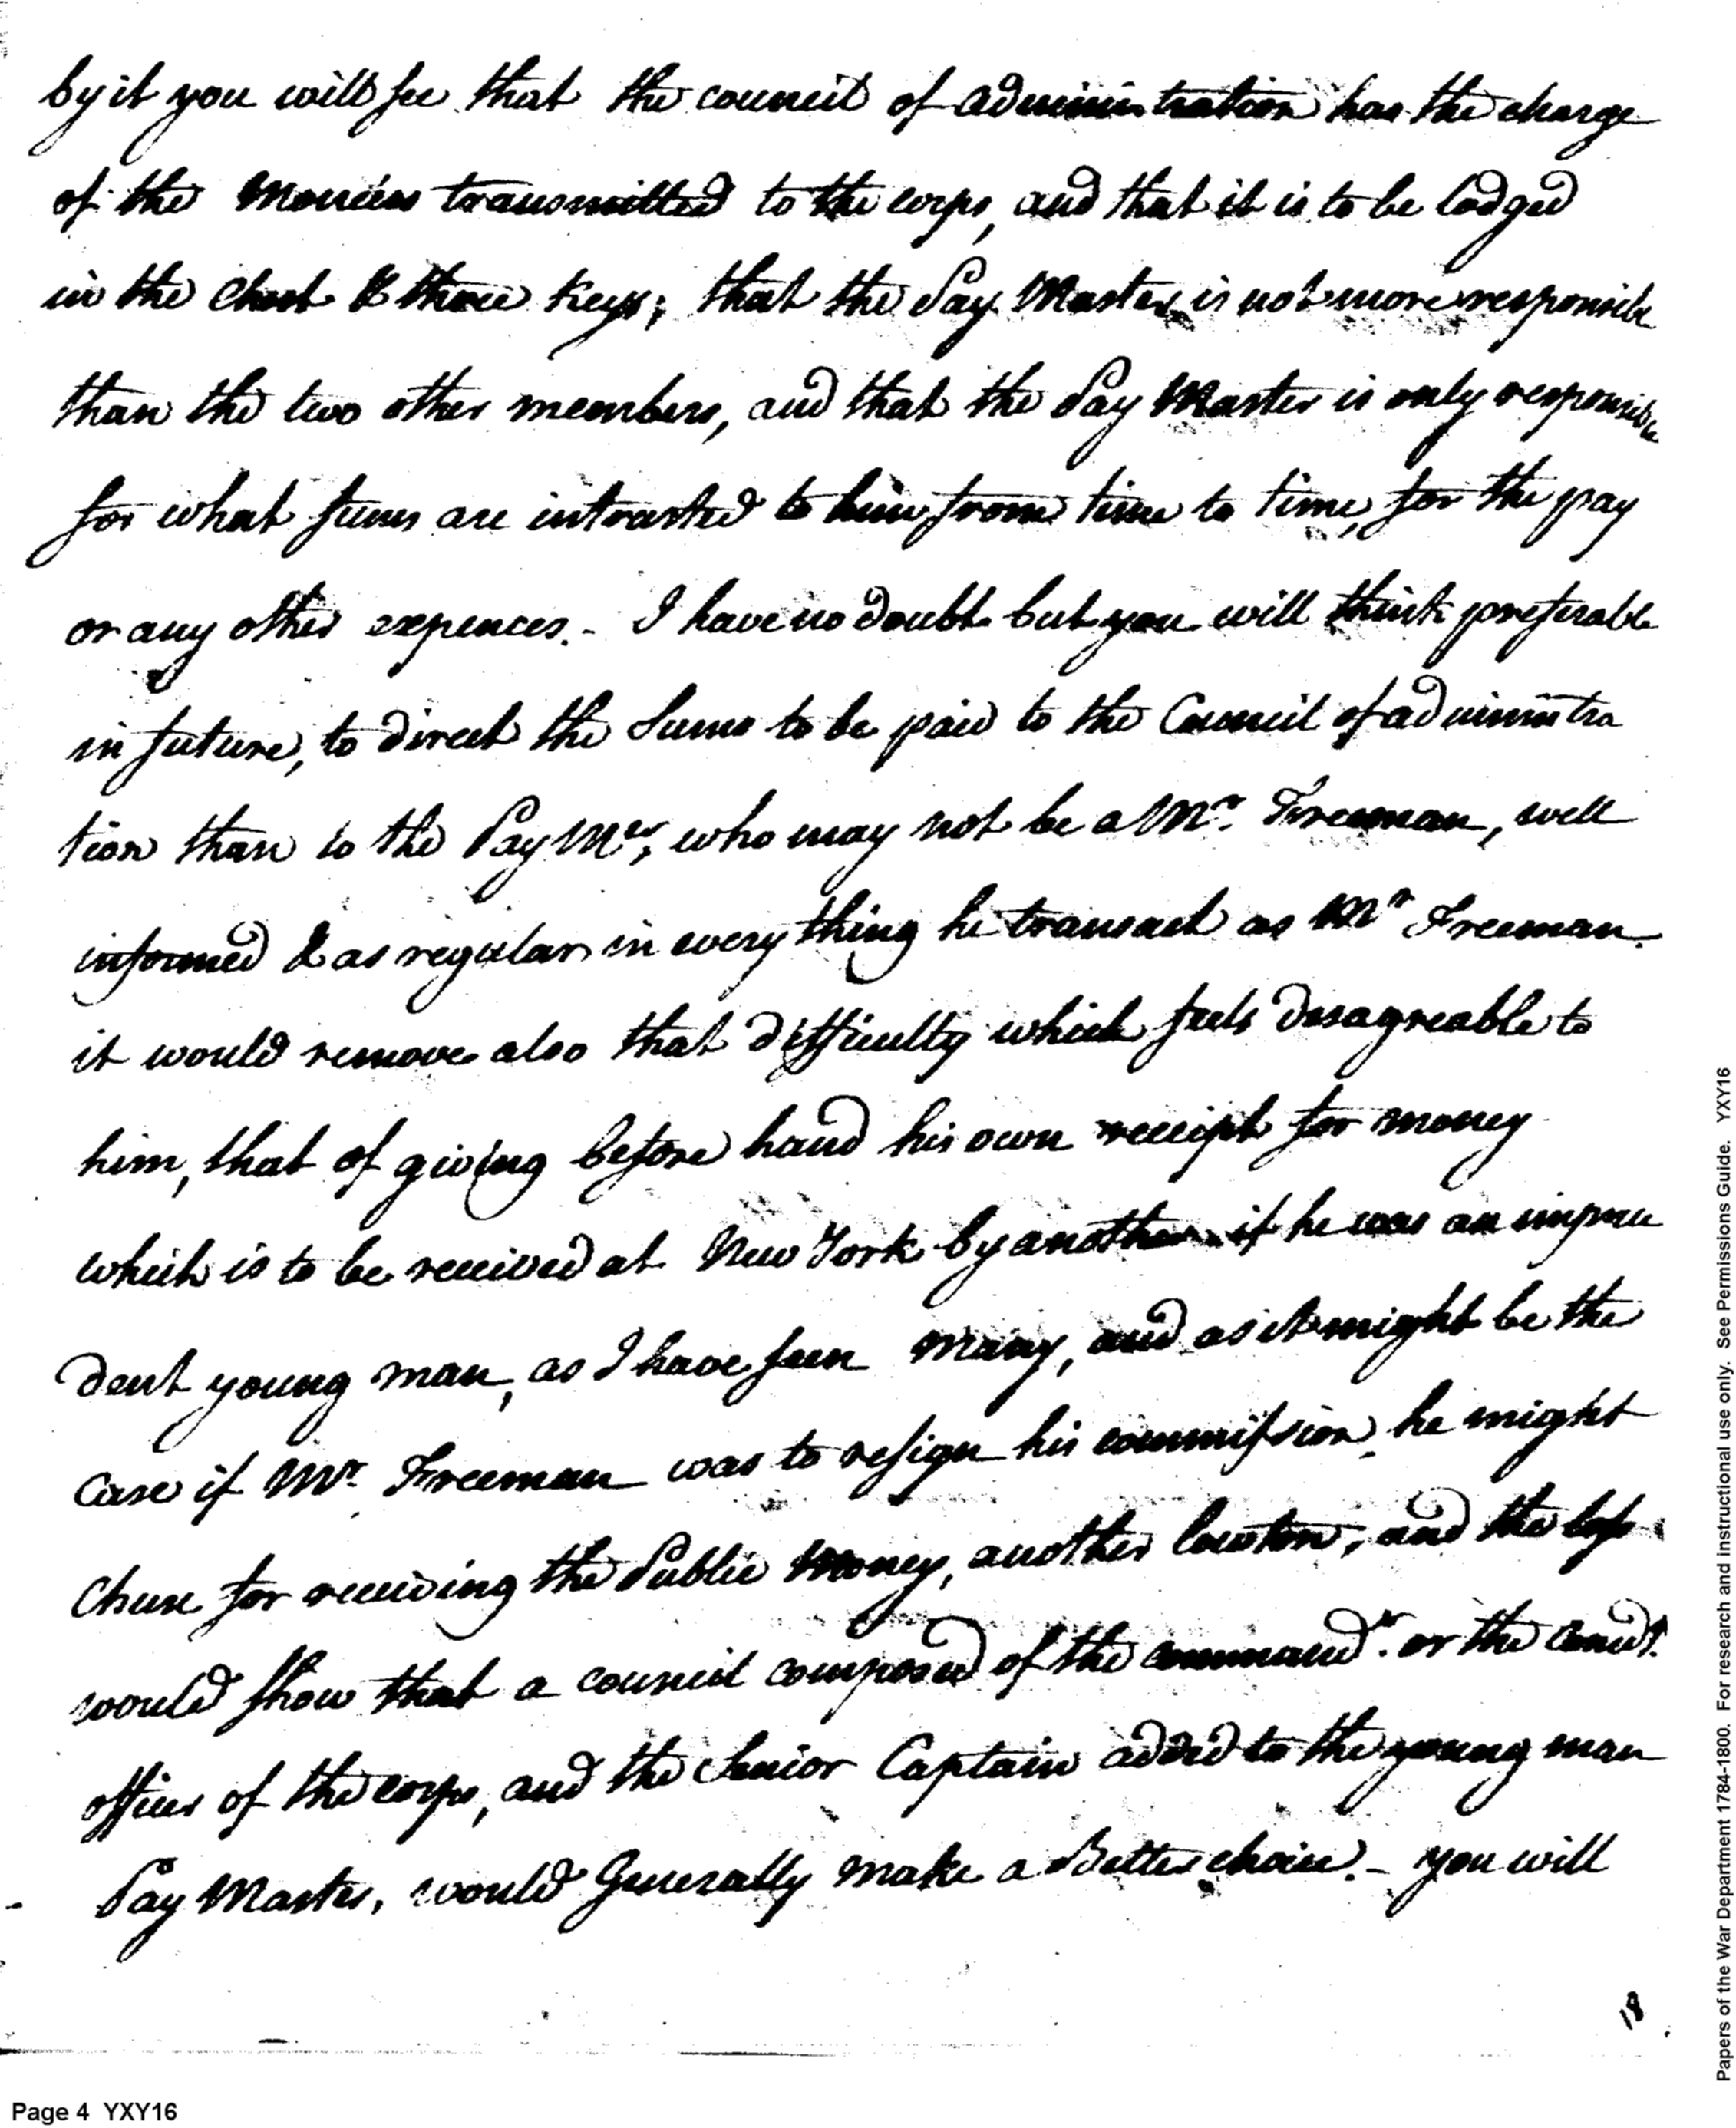 by it you will see that the council of administration has the charge
of the Monies transmitted to the corps, and that it is to be lodged
in the Chest & three Keys; that the Pay Master is not more responsible
than the two other members, and that the Pay Master is only responsible
for what sums are intrusted to him from time to time, for the pay
or any other expences. - I have no doubt but you will think preferable
in future, to direct the Sums to be paid to the Council of administra
tion than to the Pay Mer, who may not be a Mr. Freeman, well
informed & as regular in every thing he transact as Mr Freeman.
it would remove also that difficulty which feels disagreable to
him, that of giving before hand his own receipt for money
which is to be received at New York by another if he was an impru
dent young man, as I have seen many, and as it might be the
case if Mr. Freeman was to resign his commission, he might
Chuse for receiving the Public Money, another ; and the loss
would show that a council composed of the command.r or the comdt.
officer of the corps, and the Senior Captain added to the young man
Pay Master, would Generally make a Better choice. - you will
18
Page 4 YXY16
Papers of the War Department 1784-1800. For research and instructional use only. See Permissions Guide. YXY16